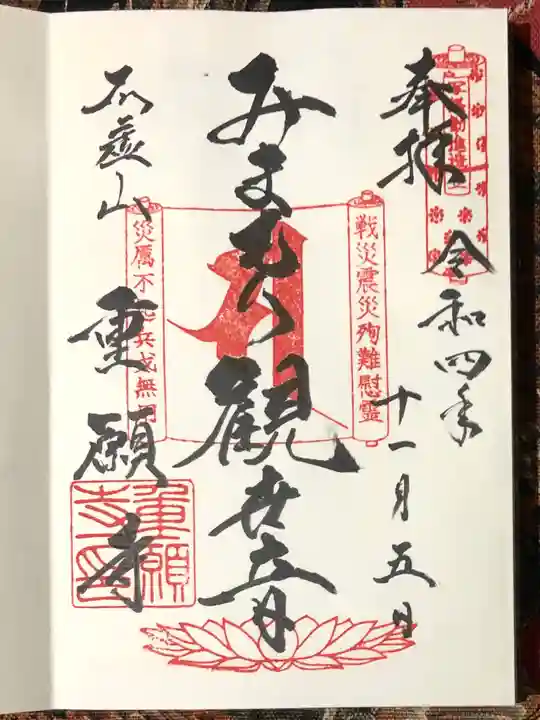 奉拝
令和四年
十一月五日
戦災震災殉難慰霊
みまもり
觀世音
災厲不起兵戈無用
不虚山
重願寺
重願
寺印